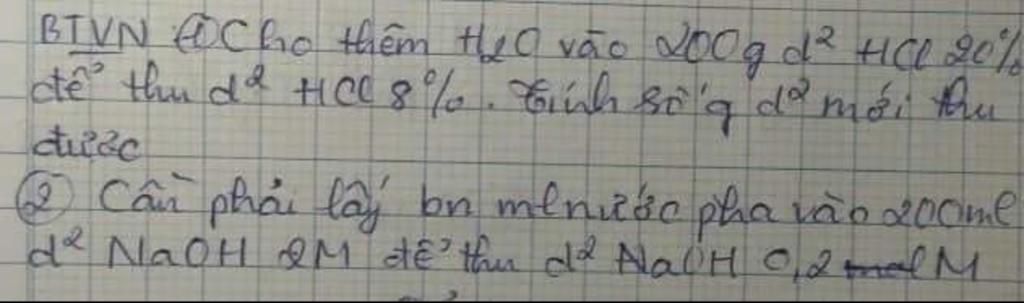 BTVN ① Cho thêm H2O vào 200g d² HCl 20%
để thu d² HCl 8%. Tính số g d² mới thu
được
② Cần phải lấy bn ml nước pha vào 200ml
d² NaOH 2M để thu d² NaOH 0,2 M